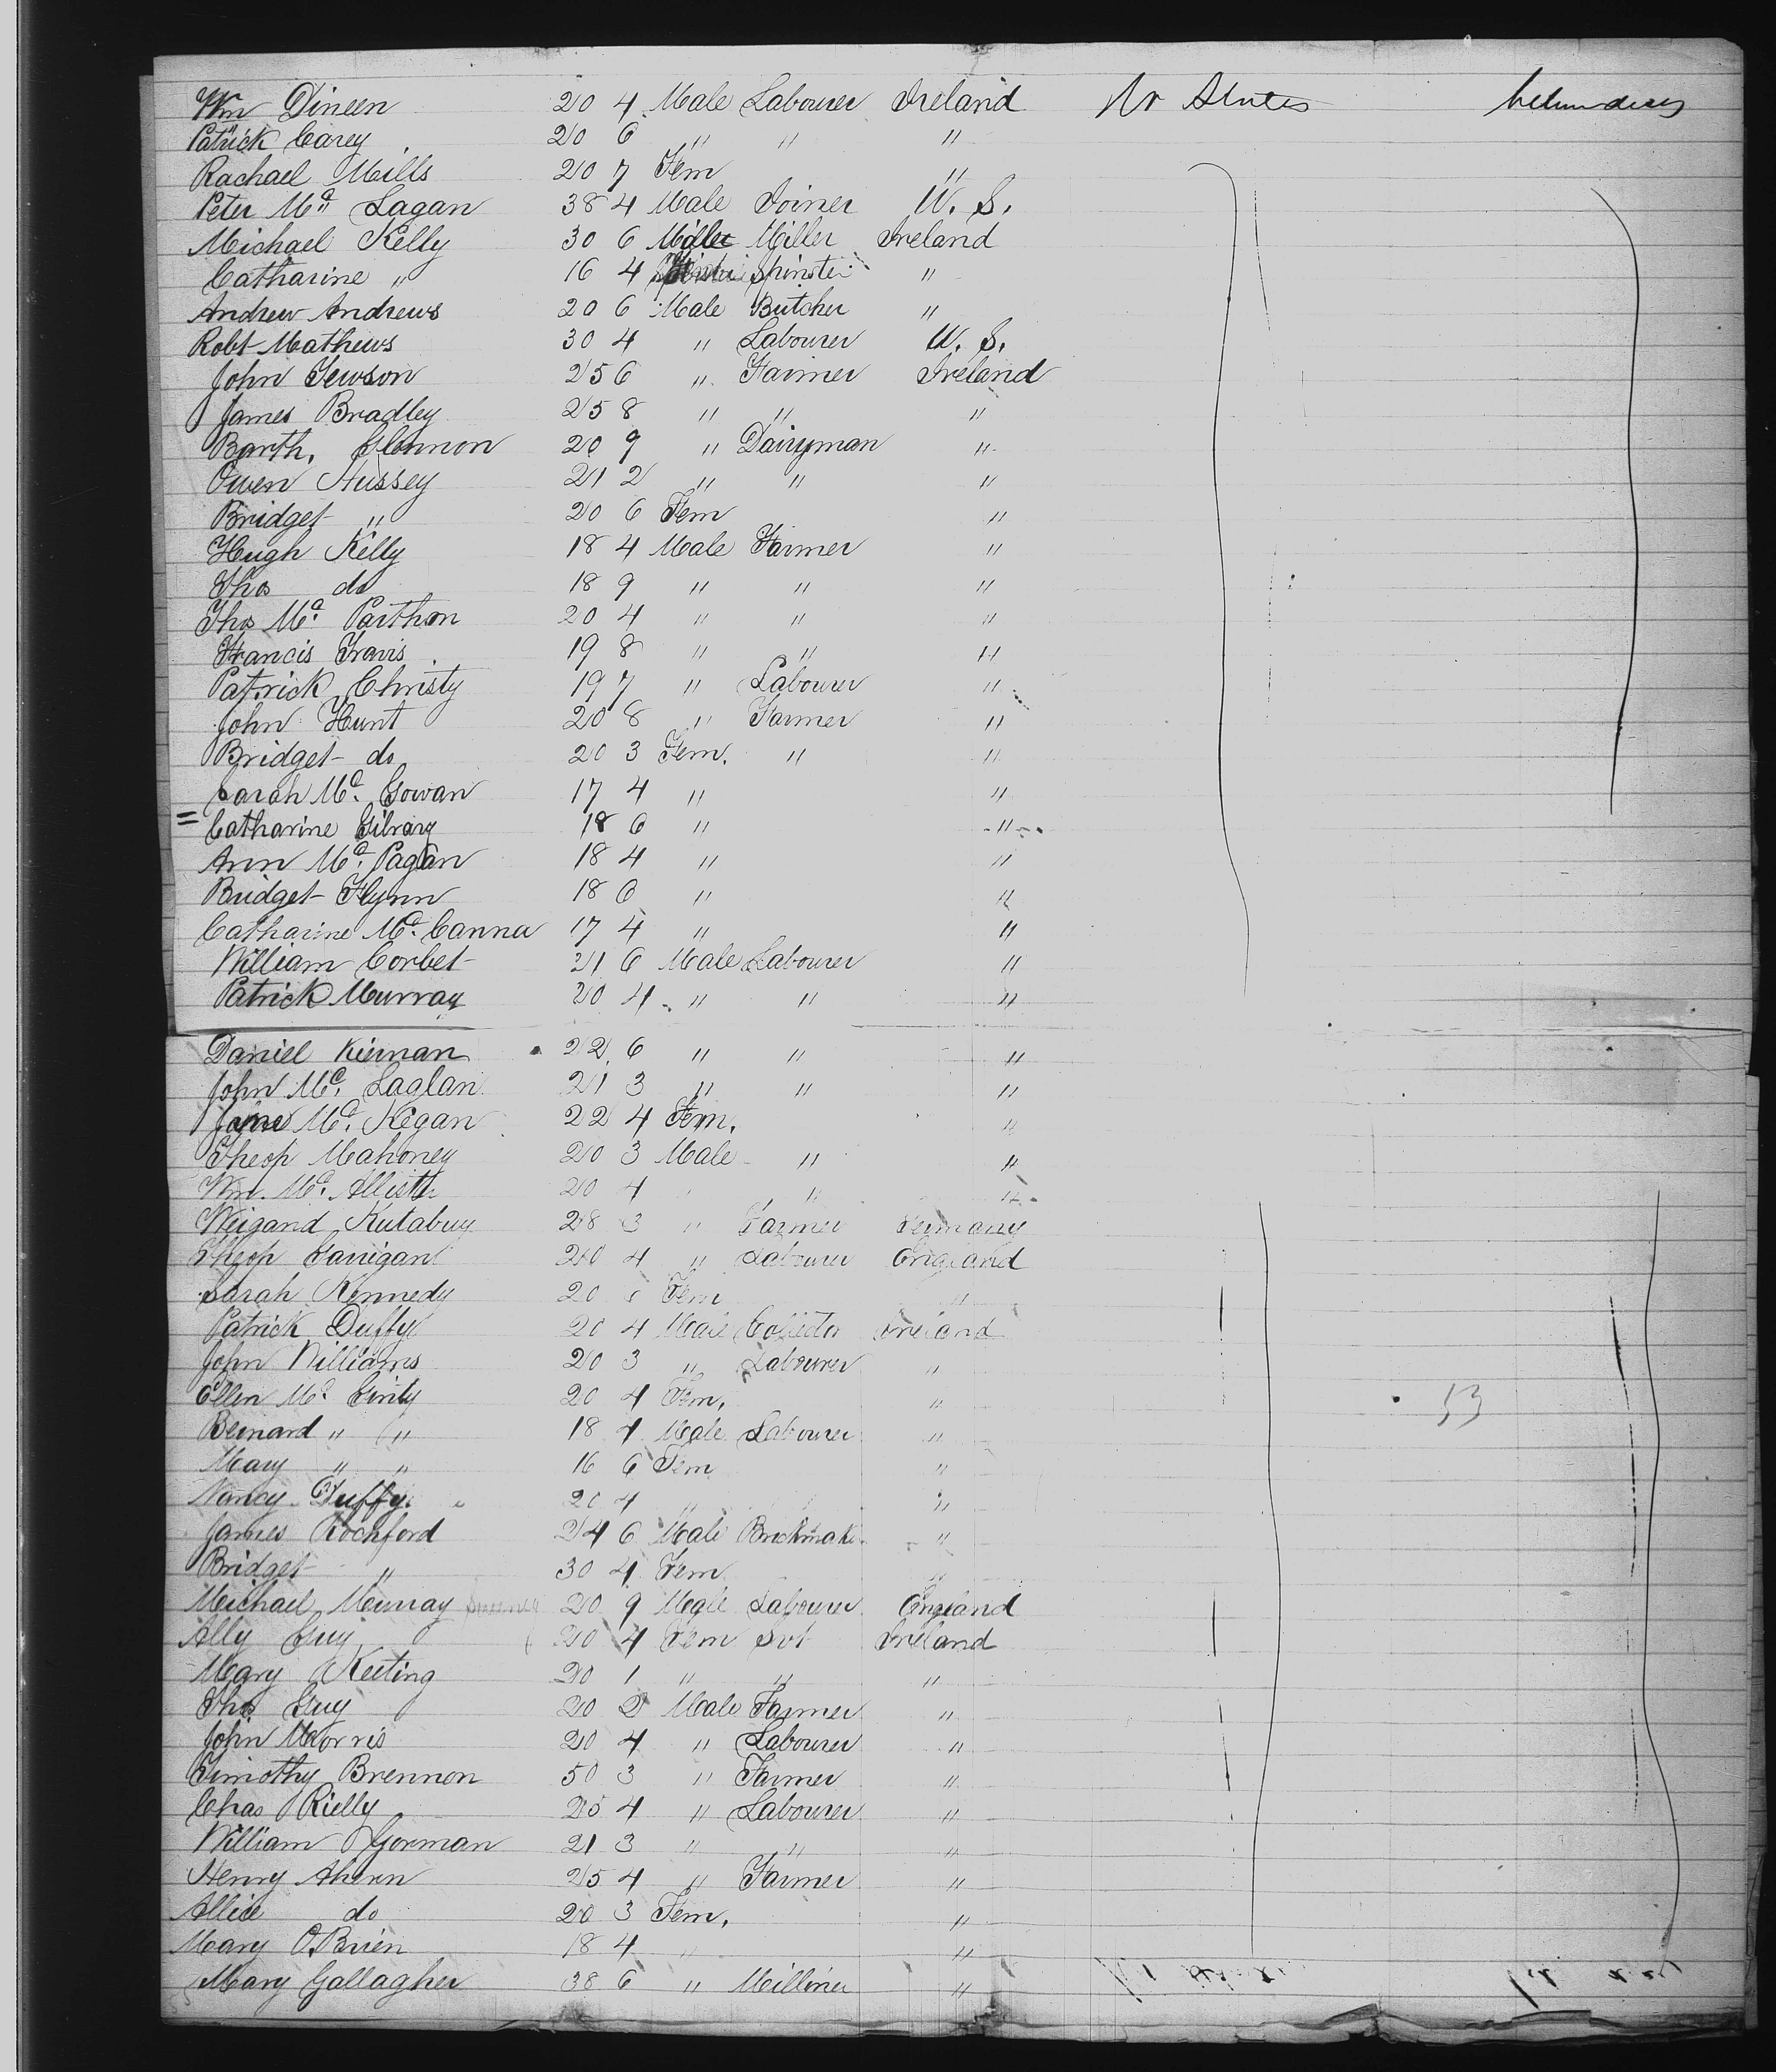 Wm Dineen 20 4 Male Labourer Ireland Un States
Patrick Carey 20 6 " " "
Rachael Mills 20 7 Fem "
Peter Mc Lagan 38 4 Male Joiner U. S.
Michael Kelly 30 6 Miller Ireland
Catharine " 16 4 Spinster "
Andrew Andrews 20 6 Male Butcher "
Robt Mathews 30 4 " Labourer U. S.
John Gewson 25 6 " Farmer Ireland
James Bradley 25 8 " " "
Barth. Glennon 20 9 " Dairyman "
Owen Hussey 21 2 " " "
Bridget " 20 6 Fem "
Hugh Kelly 18 4 Male Farmer "
Thos do 18 9 " " "
Thos Mc Parthon 20 4 " " "
Francis Travis 19 8 " " "
Patrick Christy 19 7 " Labourer "
John Hunt 20 8 " Farmer "
Bridget do 20 3 Fem. " "
Sarah Mc Gowan 17 4 " "
= Catharine Gilrary 18 6 " "
Ann Mc Pagan 18 4 " "
Bridget Flynn 18 6 " "
Catharine Mc Canna 17 4 " "
William Corbet 21 6 Male Labourer "
Patrick Murray 20 4 " " "
Daniel Kiernan 22 6 " " "
John Mc Laglan 21 3 " " "
Jane Mc Kegan 22 4 Fem. "
Theop Mahoney 20 3 Male " "
Wm. Mc Allister 20 4 " " "
Weigand Kutabuy 28 3 " Farmer Germany
Theop Garrigant 20 4 " Labourer England
Sarah Kennedy 20 Fem "
Patrick Duffy 20 4 Male Ireland
John Williams 20 3 " Labourer "
Ellen Mc Ginty 20 4 Fem. " 53
Bernard " " 18 4 Male Labourer "
Mary " " 16 6 Fem "
Nancy Duffy 20 4 " "
James Rochford 24 6 Male Brickmaker "
Bridget " 30 4 Fem "
Michael Murray 20 9 Male Labourer England
Ally Guy 20 4 Fem Svt Ireland
Mary Keeting 20 1 " " "
Thos Guy 20 2 Male Farmer "
John Morris 20 4 " Labourer "
Timothy Brennon 50 3 " Farmer "
Chas Rielly 25 4 " Labourer "
William Gorman 21 3 " " "
Henry Ahern 25 4 " Farmer "
Allice do 20 3 Fem. "
Mary O'Brien 18 4 " "
Mary Gallagher 38 6 " Milliner "